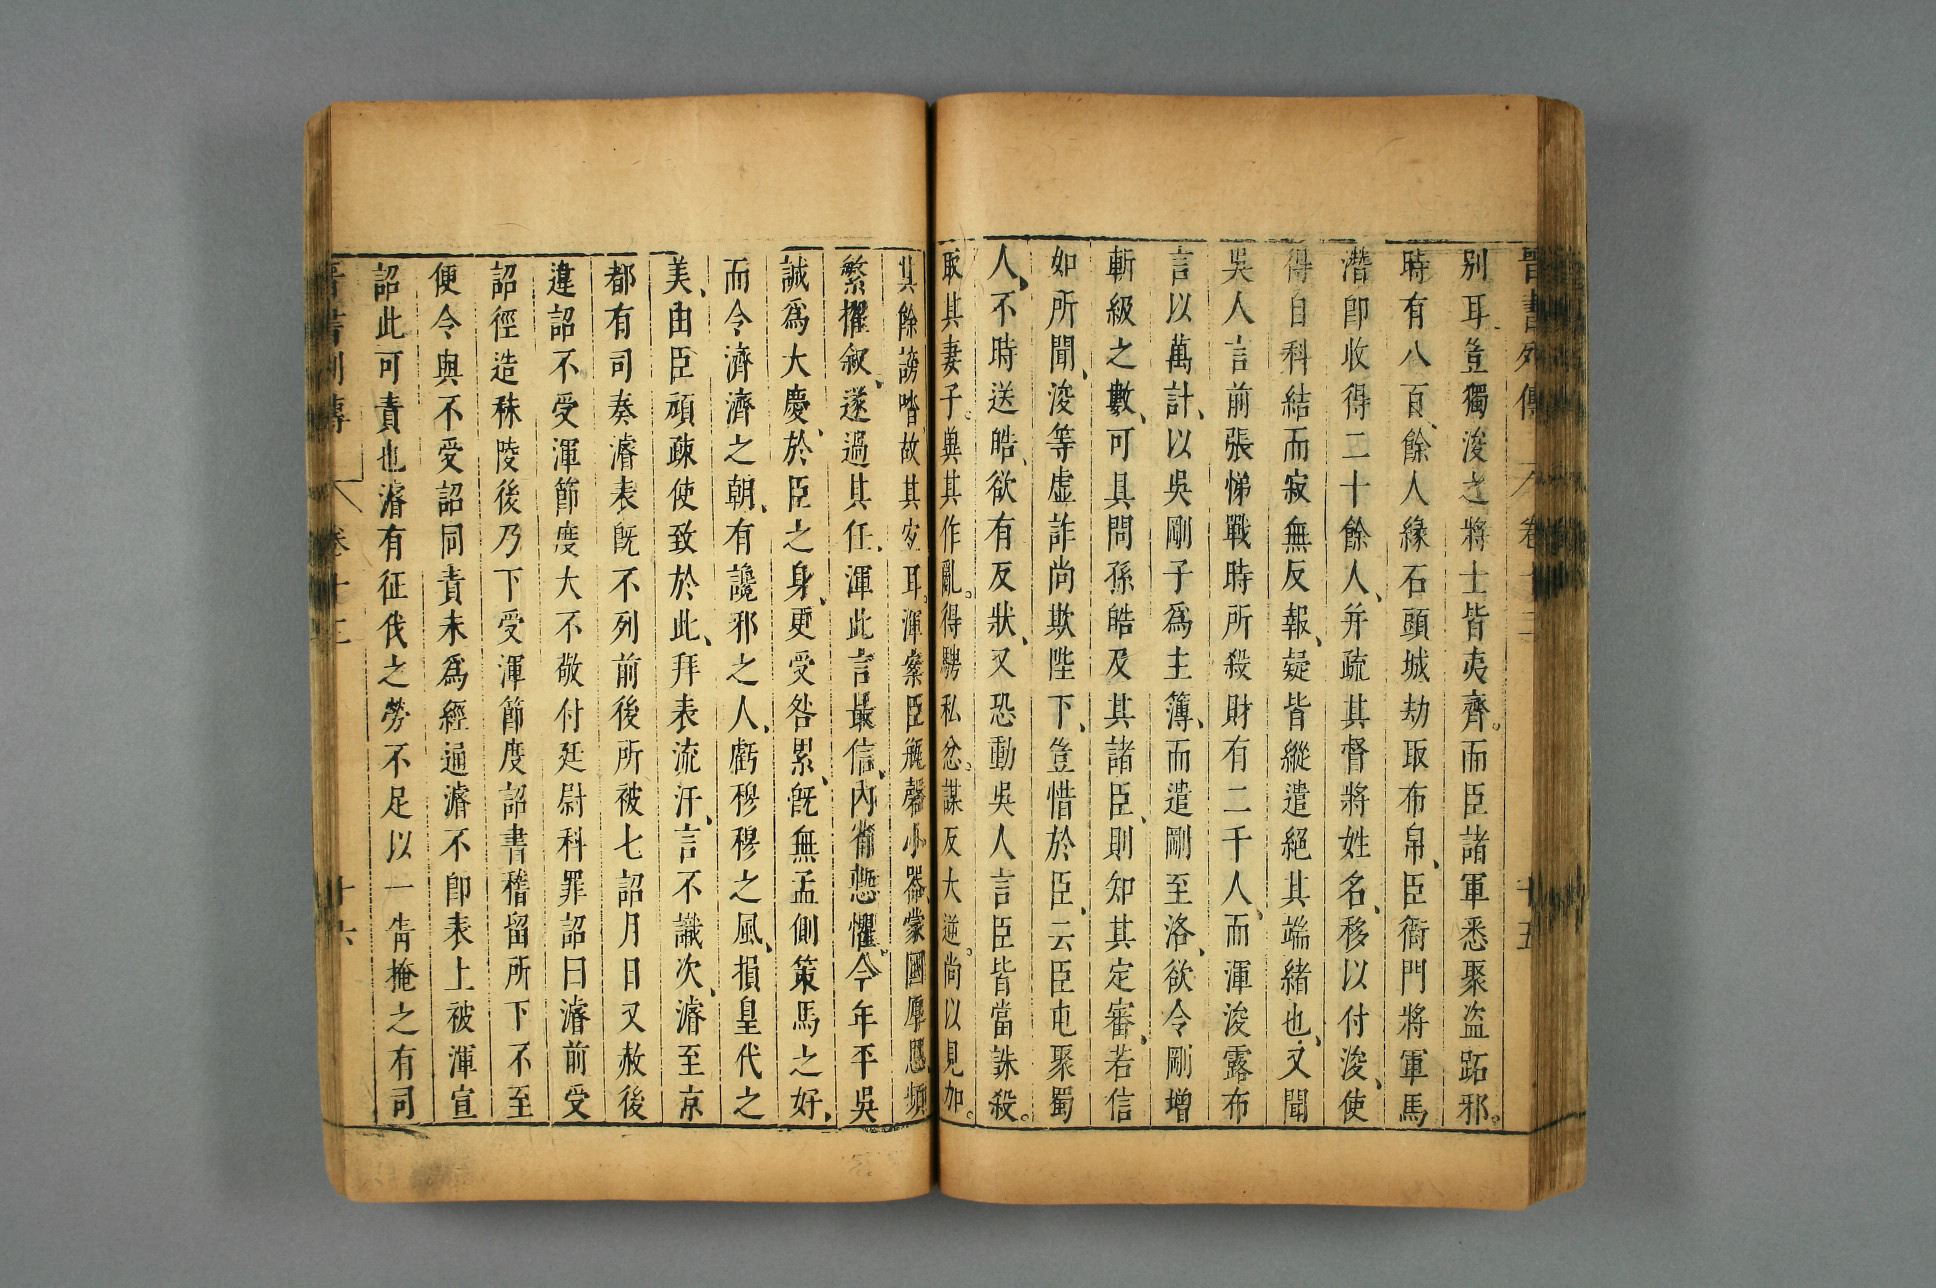 晉書列傳 卷十二 十五
別耳豈獨浚之將士皆夷齊。而臣諸軍悉聚盜跖邪。
時有八百餘人緣石頭城劫取布帛、臣衙門將軍馬
潛卽收得二十餘人、幷疏其督將姓名、移以付浚、使
得自科結而寂無反報、疑皆縱遣絕其端緒也、又聞
吳人言前張悌戰時所殺財有二千人、而渾浚露布
言以萬計、以吳剛子爲主簿、而遣剛至洛、欲令剛增
斬級之數、可具問孫皓及其諸臣、則知其定審、若信
如所聞、浚等虛詐尚欺陛下、豈惜於臣、云臣屯聚蜀
人、不時送皓、欲有反狀、又恐動吳人言臣皆當誅殺。
取其妻子。與其作亂。得騁私忿。謀反大逆。尚以見加。
其餘謗㗳、故其宜耳。渾案臣瓶磬小器、蒙國厚恩、頻
繁擢叙、遂過其任、渾此言最信、內省慙懼。今年平吳
誠爲大慶、於臣之身、更受咎累、旣無孟側策馬之好、
而令濟濟之朝、有讒邪之人、虧穆穆之風、損皇代之
美、由臣頑疎使致於此、拜表流汗、言不識次、濬至京
都有司奏濬表旣不列前後所被七詔月日又赦後
違詔不受渾節度大不敬付廷尉科罪詔曰濬前受
詔徑造秣陵後乃下受渾節度詔書稽留所下不至
便令與不受詔同責未爲經通濬不卽表上被渾宣
詔此可責也濬有征伐之勞不足以一眚掩之有司
晉書列傳 卷十二 十六